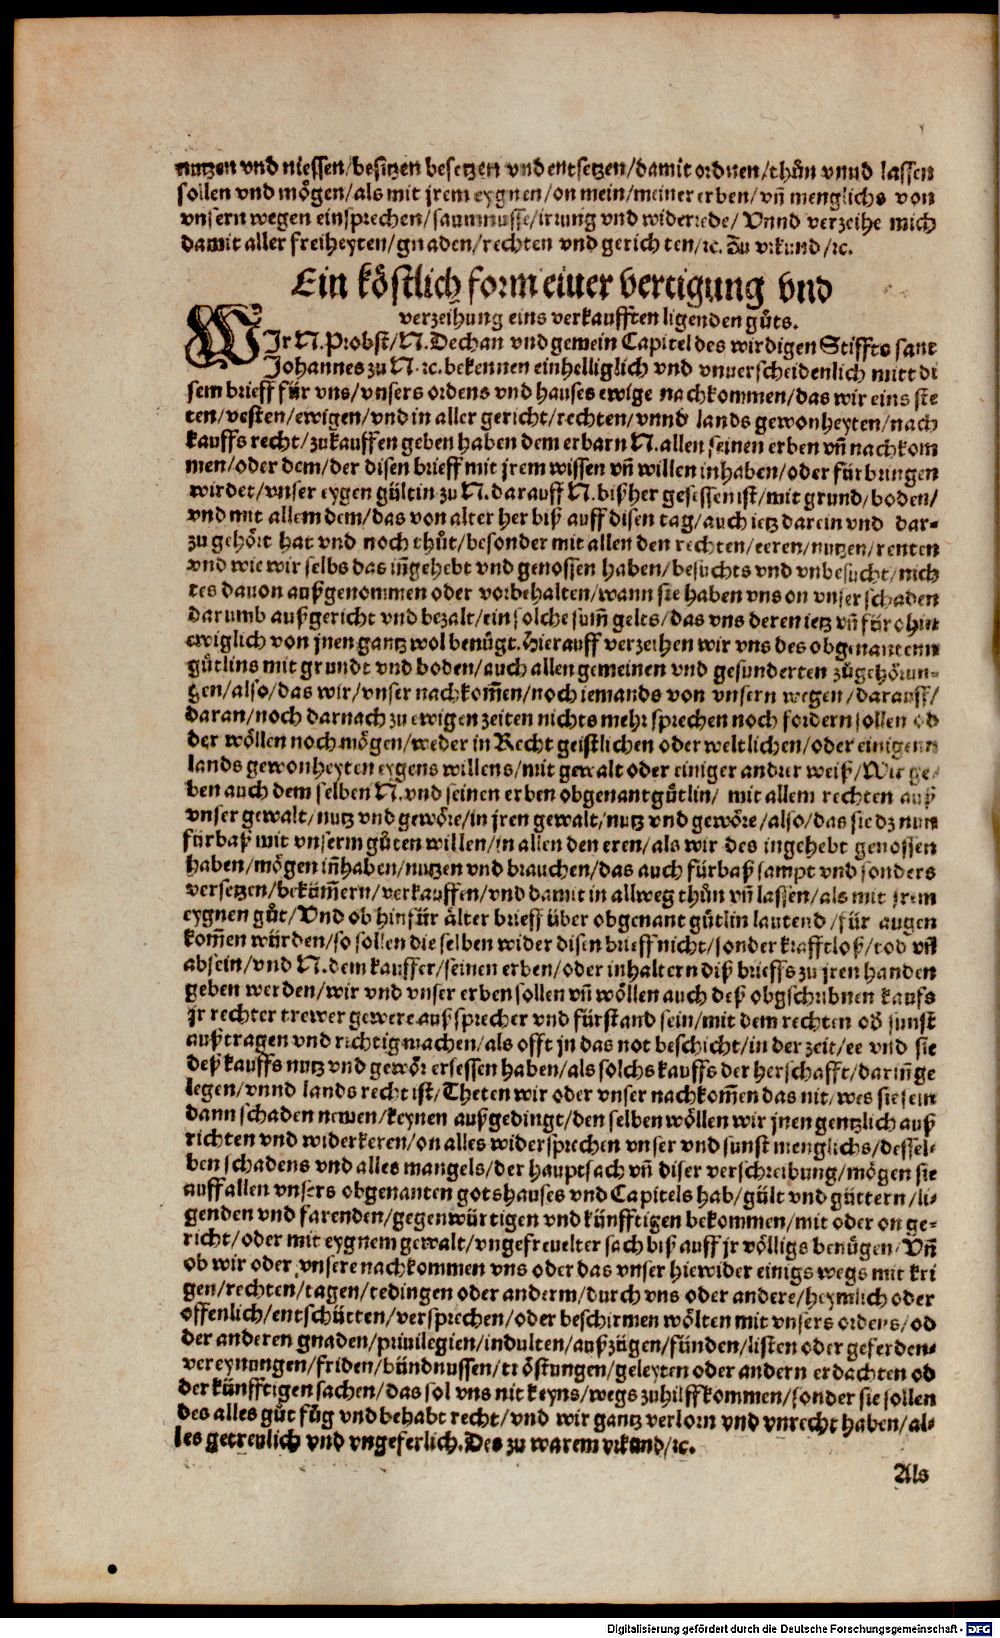 nutzen vnd niessen/besitzen besetzen vnd entsetzen/damit ordnen/thůn vnnd lassen
sollen vnd mögen/als mit jrem eygnen/on mein/meiner erben/vn̄ menglichs von
vnsern wegen einsprechen/saumnusse/irrung vnd widerrede/Vnnd verzeihe mich
damit aller freiheyten/gnaden/rechten vnd gerichten/ꝛc. Zu vrkund/ꝛc.
Ein köstlich form einer vertigung vnd
verzeihung eins verkaufften ligenden gůts.
WIr N. Probst/N. Dechan vnd gemein Capitel des wirdigen Stiffts sant
Johannes zu N. ꝛc. bekennen einhelliglich vnd vnuerscheidenlich mitt di
sem brieff für vns/vnsers ordens vnd hauses ewige nachkommen/das wir eins ste
ten/vesten/ewigen/vnd in aller gericht/rechten/vnnd lands gewonheyten/nach
kauffs recht/zukauffen geben haben dem erbarn N. allen seinen erben vn̄ nachkom
men/oder dem/der disen brieff mit jrem wissen vn̄ willen inhaben/oder fürbringen
wirdet/vnser eygen gültin zu N. darauff N. bißher gesessen ist/mit grund/boden/
vnd mit allem dem/das von alter her biß auff disen tag/auch ietz darein vnd dar-
zu gehört hat vnd noch thůt/besonder mit allen den rechten/eeren/nutzen/renten
vnd wie wir selbs das in̄gehebt vnd genossen haben/besuchts vnd vnbesucht/nich
tes dauon außgenommen oder vorbehalten/wann sie haben vns on vnser schaden
darumb außgericht vnd bezalt/ein solche sum̄ gelts/das vns deren ietz vn̄ für ohin
ewiglich von jnen gantz wol benůgt. Hierauff verzeihen wir vns des obgenantenn
gůtlins mit grundt vnd boden/auch allen gemeinen vnd gesunderten zůgehörun-
gen/also/das wir/vnser nachkom̄en/noch iemands von vnsern wegen/darauff/
daran/noch darnach zu ewigen zeiten nichts mehr sprechen noch fordern sollen od
der wöllen noch mögen/weder in Recht geistlichen oder weltlichen/oder einigenn
lands gewonheyten eygens willens/mit gewalt oder einiger andrer weiß/Wir ge/
ben auch dem selben N. vnd seinen erben obgenant gůtlin/ mit allem rechten auß
vnser gewalt/nutz vnd gewöre/in jren gewalt/nutz vnd gewöre/also/das sie dz nun
fürbaß mit vnserm gůten willen/in allen den eren/als wir des ingehebt genossen
haben/mögen in̄haben/nutzen vnd brauchen/das auch fürbaß sampt vnd sonders
versetzen/bekům̄ern/verkauffen/vnd damit in allweg thůn vn̄ lassen/als mit jrem
eygnen gůt/Vnd ob hinfür älter brieff über obgenant gůtlin lautend/für augen
kom̄en würden/so sollen die selben wider disen brieff nicht/sonder krafftloß/tod vn̄
absein/vnd N. dem kauffer/seinen erben/oder inhaltern diß brieffs zu jren handen
geben werden/wir vnd vnser erben sollen vn̄ wöllen auch deß obgschribnen kaufs
jr rechter trewer gewere außsprecher vnd fürstand sein/mit dem rechten od̄ sunst
außtragen vnd richtig machen/als offt jn das not beschicht/in der zeit/ee vnd sie
deß kauffs nutz vnd gewör ersessen haben/als solchs kauffs der herschafft/darin̄ ge
legen/vnnd lands recht ist/Theten wir oder vnser nachkom̄en das nit/wes sie sein
dann schaden nemen/keynen außgedingt/den selben wöllen wir jnen gentzlich auß
richten vnd widerkeren/on alles widersprechen vnser vnd sunst menglichs/dessel-
ben schadens vnd alles mangels/der hauptsach vn̄ diser verschreibung/mögen sie
auff allen vnsers obgenanten gotshauses vnd Capitels hab/gült vnd güttern/li-
genden vnd farenden/gegenwürtigen vnd künfftigen bekommen/mit oder on ge-
richt/oder mit eygnem gewalt/vngefreuelter sach biß auff jr völligs benůgen/Vn̄
ob wir oder vnsere nachkommen vns oder das vnser hiewider einigs wegs mit kri
gen/rechten/tagen/tedingen oder anderm/durch vns oder andere/heymlich oder
offenlich/entschütten/versprechen/oder beschirmen wölten mit vnsers ordens/od
der anderen gnaden/priuilegien/indulten/außzügen/fünden/listen oder geferden-
vereynungen/friden/bündnussen/tröstungen/geleyten oder andern erdachten od
der künfftigen sachen/das sol vns nit keyns/wegs zuhilff kommen/sonder sie sollen
des alles gůt fůg vnd behabt recht/vnd wir gantz verlorn vnd vnrecht haben/al-
les getreulich vnd vngeferlich. Des zu warem vrkund/ꝛc.
Als
Digitalisierung gefördert durch die Deutsche Forschungsgemeinschaft - DFG